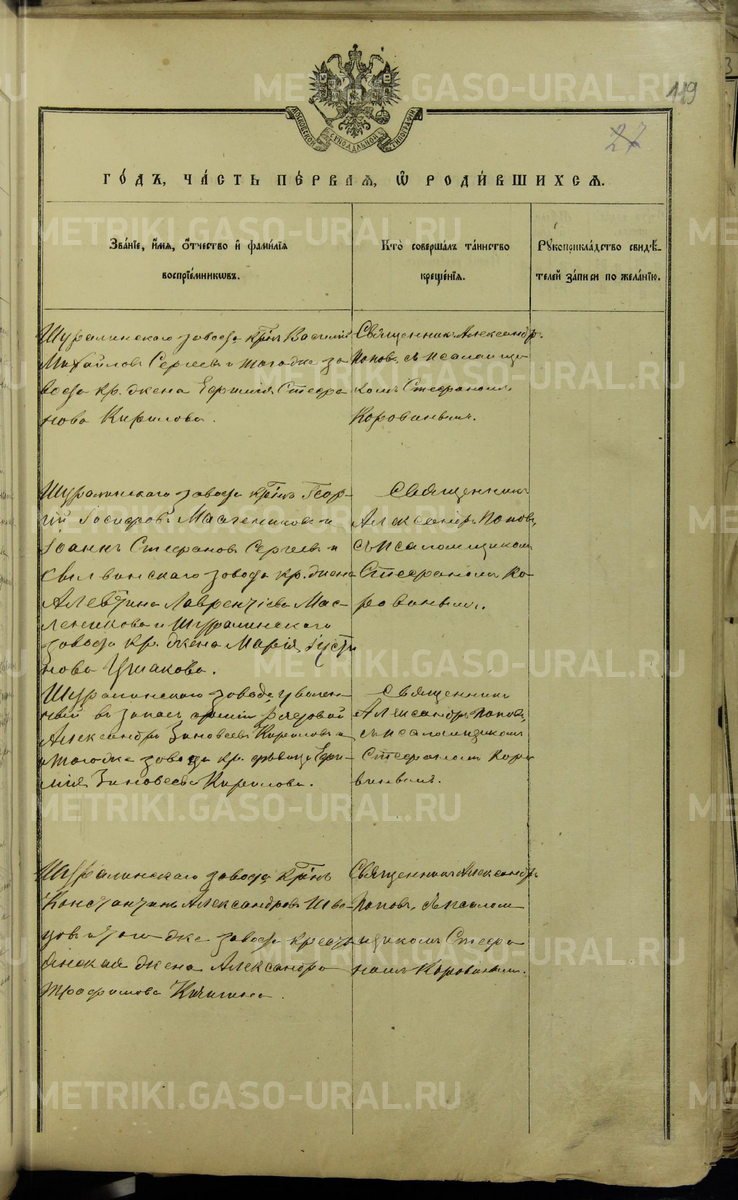 119
27
МОСКОВСКОЙ СѴНОДАЛЬНОЙ ТИПОГРАФІИ
ГО́ДЪ, ЧА́СТЬ ПЕ́РВАЯ, Ѿ РОДИ́ВШИХСЯ.
Зва́нїе, и́мя, о́тчество и҆ фами́лїя
воспрїе́мниковъ.
Кто̀ соверша́лъ та́инство
креще́нїя.
Рꙋкоприкла́дство свидѣ́-
телей за́писи по жела́нїю.
Шуралинскаго завода кр҃інъ Василій
Михайловъ Сергеевъ и тогоже за
вода кр. жена Ефимія Стефа
нова Кирилова.
Священникъ Александръ
Поповъ, съ псаломщи
комъ Стефаномъ
Корованымъ.
Шуралинскаго завода кр҃інъ Геор-
гій Іосифовъ Масленниковъ и
Іоаннъ Стефановъ Сергеевъ и
завода кр. жена
Алевтина Лаврентіева Мас-
леникова и Шуралинскаго
завода кр. жена Марія Іусти
нова Ушакова.
Священникъ
Александръ Поповъ,
съ псаломщикомъ
Стефаномъ Ко-
рованымъ.
Шуралинскаго завода уволен-
ный въ запасъ арміи рядовой
Александръ Зиновьевъ Кириловъ и
тогоже завода кр. дѣвица
Зиновьева Кирилова.
Священникъ
Александръ Поповъ,
съ псаломщикомъ
Стефаномъ Коро
ванымъ.
Шуралинскаго завода кр҃інъ
Константинъ Александровъ Шве
цовъ и того же завода кресть
янская жена Александра
Трофимова Кичигина.
Священникъ Александръ
Поповъ, съ псалом
щикомъ Стефа
номъ Корованымъ.
METRIKI.GASO-URAL.RU